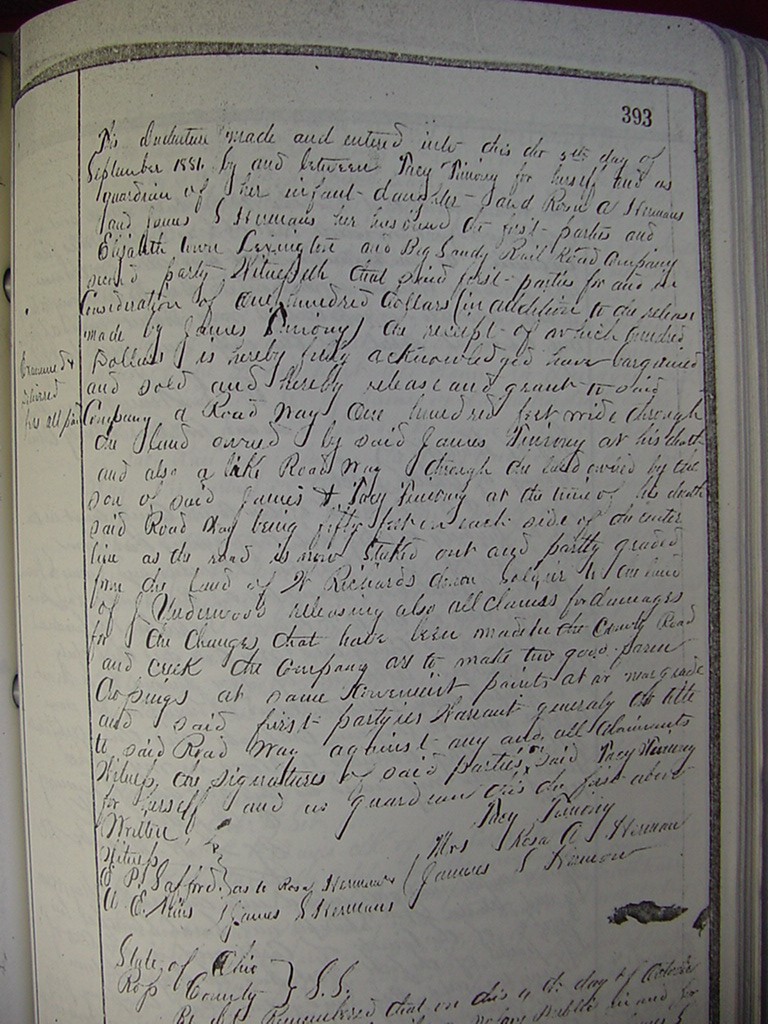 393
This Indenture made and entered into this the 5th day of
September 1881. by and between Tacy Timony for herself and as
guardian of her infant daughter said Rosa A Hermans
and James S Hermans her husband the first parties and
Elisabeth town Lexington and Big Sandy Rail Road Company
second party Witnesseth that said first parties for and in
Consideration of One hundred Dollars (in addition to the release
made by James Timony) the receipt of which hundred
Dollars is hereby fully acknowledged have bargained
and sold and hereby release and grant to said
Company a Road Way One hundred feet wide through
the land owned by said James Timony at his death
and also a like Road Way through the land owned by the
son of said James & Tacy Timony at the time of his death
said Road Way being fifty feet on each side of the center
line as the road is now staked out and partly graded
from the land of W Richards down to the line
of J Underwoods releasing also all claims for damages
for the changes that have been made in the County Road
and creek the Company are to make two good
Crossings at some convenient points at or near grade
and said first partyies Warrant generaly the title
to said Road Way against any and all claimants
Witness the signatures of said parties said Tacy Timony
for herself and as guardian this the first above
Written
Tacy Timony
Witness
Mrs Rosa A Herman
E. P. Safford } as to Rosa Hermans
James S Herman
James S Hermans
Examined &
delivered
State of Ohio
Ross County } S.S.
Be it Remembered that on this 4 th day of October
Notary Public in and for